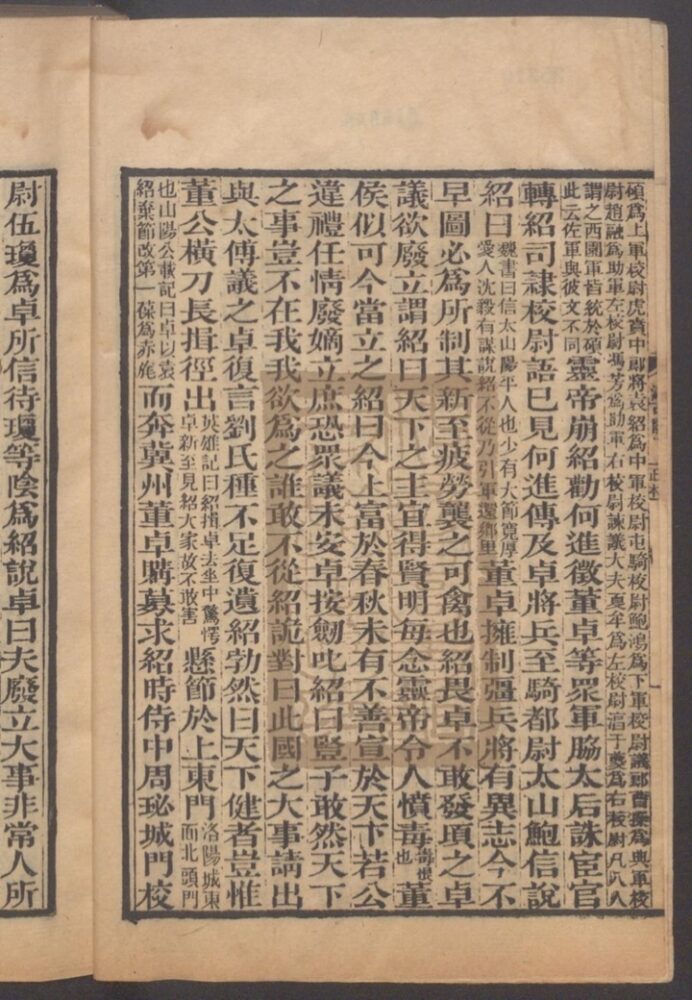 碩爲上軍校尉虎賁中郎將袁紹爲中軍校尉屯騎校尉鮑鴻爲下軍校尉議郎曹操爲典軍校
尉趙融爲助軍左校尉馮芳爲助軍右校尉諫議大夫夏牟爲左校尉淳于瓊爲右校尉凡八人
謂之西園軍皆統於碩此云佐軍與彼文不同靈帝崩紹勸何進徵董卓等眾軍脇太后誅宦官
轉紹司隸校尉語已見何進傳及卓將兵至騎都尉太山鮑信說
紹曰魏書曰信太山陽平人也少有大節寬厚愛人沈毅有謀說紹不從乃引軍還鄉里董卓擁制彊兵將有異志今不
早圖必爲所制其新至疲勞襲之可禽也紹畏卓不敢發頃之卓
議欲廢立謂紹曰天下之主宜得賢明每念靈帝令人憤毒毒恨也董
侯似可今當立之紹曰今上富於春秋未有不善宣於天下若公
違禮任情廢嫡立庶恐眾議未安卓按劒叱紹曰豎子敢然天下
之事豈不在我我欲爲之誰敢不從紹詭對曰此國之大事請出
與太傅議之卓復言劉氏種不足復遺紹勃然曰天下健者豈惟
董公橫刀長揖徑出英雄記曰紹揖卓去坐中驚愕卓新至見紹大家故不敢害懸節於上東門洛陽城東面北頭門
也山陽公載記曰卓以袁紹棄節改第一葆爲赤旄而奔冀州董卓購募求紹時侍中周珌城門校
尉伍瓊爲卓所信待瓊等陰爲紹說卓曰夫廢立大事非常人所